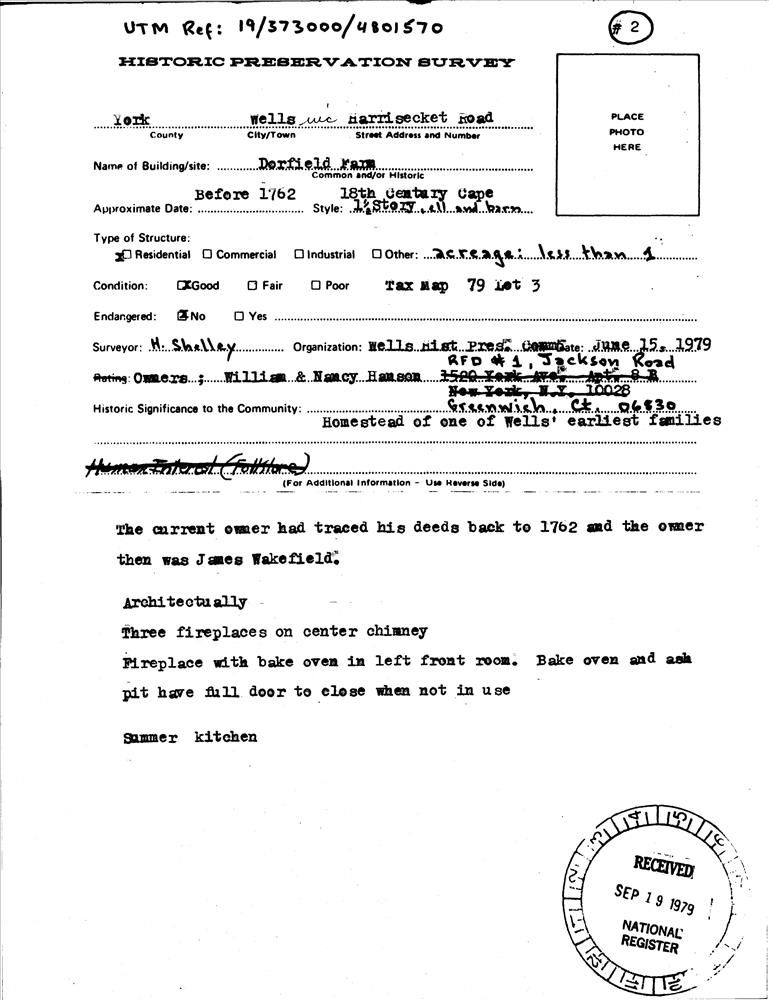 UTM Ref: 19/373000/4801570
# 2
HISTORIC PRESERVATION SURVEY
York Wells Harrisecket Road
County City/Town Street Address and Number
PLACE
PHOTO
HERE
Name of Building/site: Dorfield Farm
Common and/or Historic
Before 1762 18th Century Cape
Approximate Date: Style: 1½ Story, ell and barn
Type of Structure:
x Residential Commercial Industrial Other: acreage: less than 1
Condition: X Good Fair Poor Tax Map 79 Lot 3
Endangered: X No Yes
Surveyor: H. Shelley Organization: Wells Hist Pres. Comm. Date: June 15, 1979
RFD # 1, Jackson Road
Rating: Owners: William & Nancy Hanson 1520 York Ave. Apt. 8 B
New York, N.Y. 10028
Historic Significance to the Community: Greenwich, Ct. 06830
Homestead of one of Wells' earliest families
Human Interest (Folklore)
(For Additional Information - Use Reverse Side)
The current owner had traced his deeds back to 1762 and the owner
then was James Wakefield.
Architectually
Three fireplaces on center chimney
Fireplace with bake oven in left front room. Bake oven and ash
pit have full door to close when not in use
Summer kitchen
RECEIVED
SEP 19 1979
NATIONAL
REGISTER